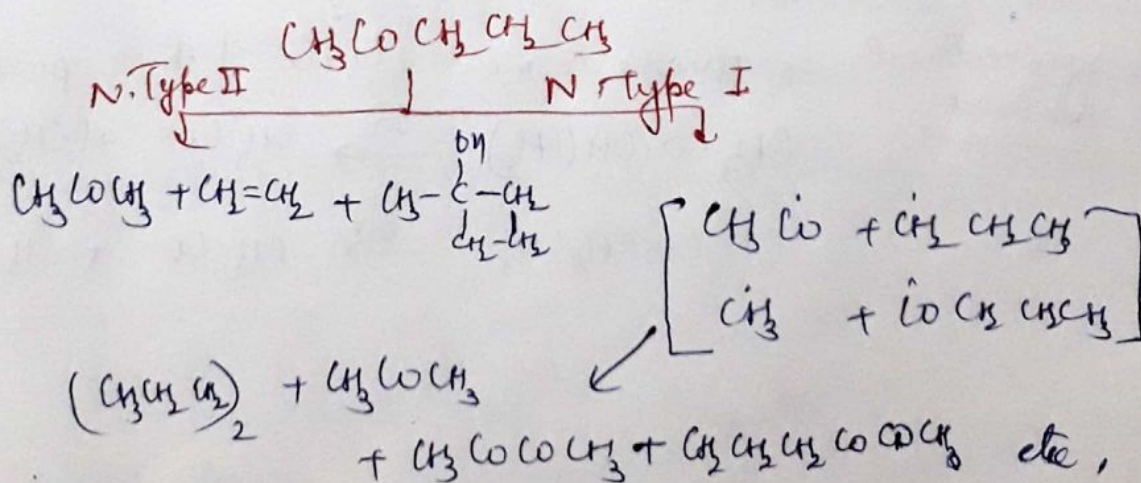 CH₃COCH₂CH₂CH₃
N. Type II N. Type I
CH₃COCH₃ + CH₂=CH₂ + CH₃-C-CH₂
OH
CH₂-CH₂
CH₃ĊO + ĊH₂ CH₂CH₃
ĊH₃ + ĊO CH₂ CH₂CH₃
(CH₃CH₂CH₂)₂ + CH₃COCH₃
+ CH₃COCOCH₃ + CH₃CH₂CH₂COCOCH₃ etc,